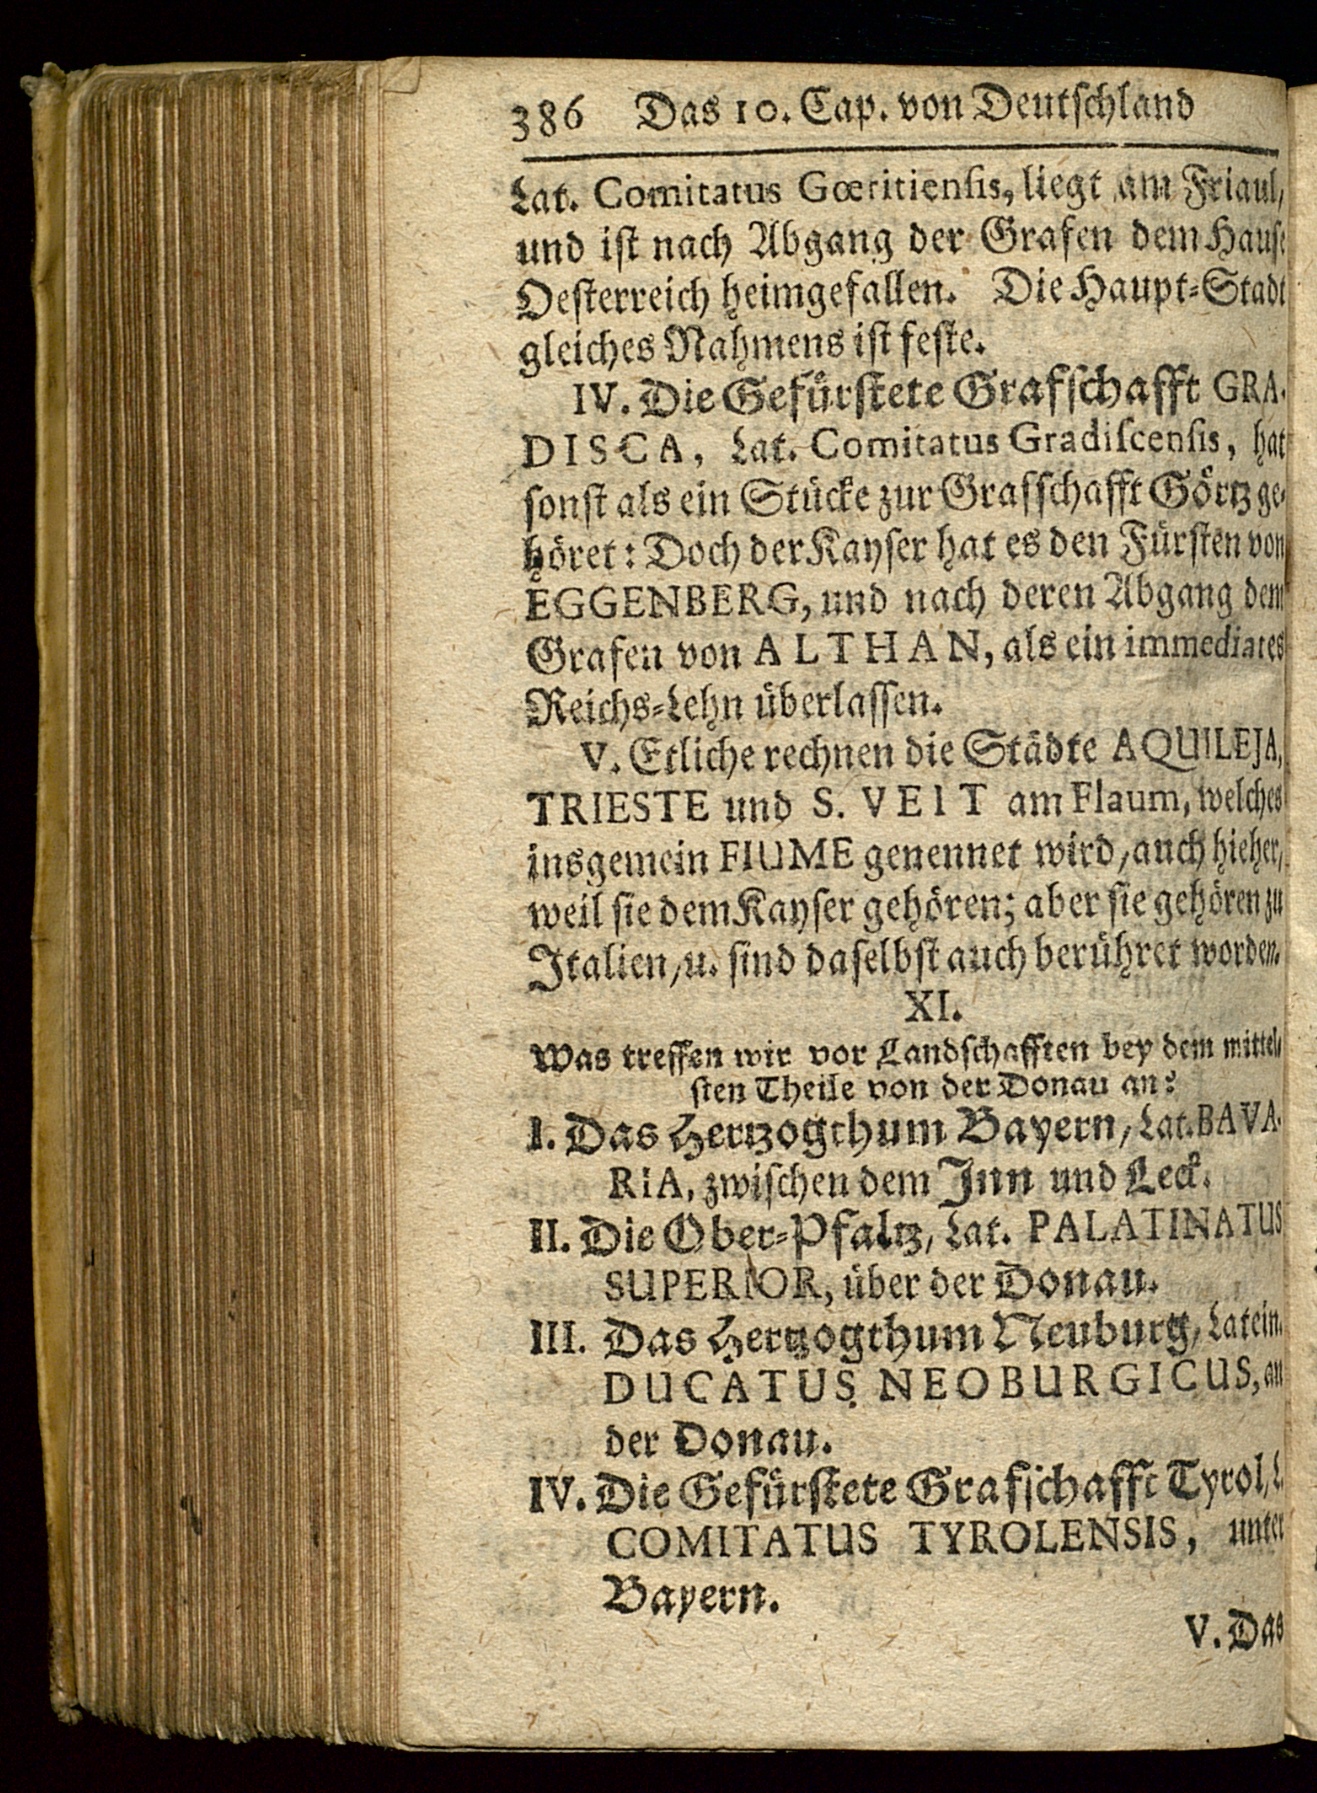 386 Das 10. Cap. von Deutschland
Lat. Comitatus Gœritiensis, liegt am Friaul,
und ist nach Abgang der Grafen dem Hause
Oesterreich heimgefallen. Die Haupt-Stadt
gleiches Nahmens ist feste.
IV. Die Gefürstete Grafschafft GRA-
DISCA, Lat. Comitatus Gradiscensis, hat
sonst als ein Stücke zur Grafschafft Görtz ge-
höret: Doch der Kayser hat es den Fürsten von
EGGENBERG, und nach deren Abgang dem
Grafen von ALTHAN, als ein immediates
Reichs-Lehn überlassen.
V. Etliche rechnen die Städte AQUILEJA,
TRIESTE und S. VEIT am Flaum, welches
insgemein FIUME genennet wird, auch hieher,
weil sie dem Kayser gehören; aber sie gehören zu
Italien, u. sind daselbst auch berühret worden.
XI.
Was treffen wir vor Landschafften bey dem mittel-
sten Theile von der Donau an?
I. Das Hertzogthum Bayern, Lat. BAVA-
RIA, zwischen dem Inn und Leck.
II. Die Ober-Pfaltz, Lat. PALATINATUS
SUPERIOR, über der Donau.
III. Das Hertzogthum Neuburg, Latein.
DUCATUS NEOBURGICUS, an
der Donau.
IV. Die Gefürstete Grafschafft Tyrol, L.
COMITATUS TYROLENSIS, unter
Bayern.
V. Das